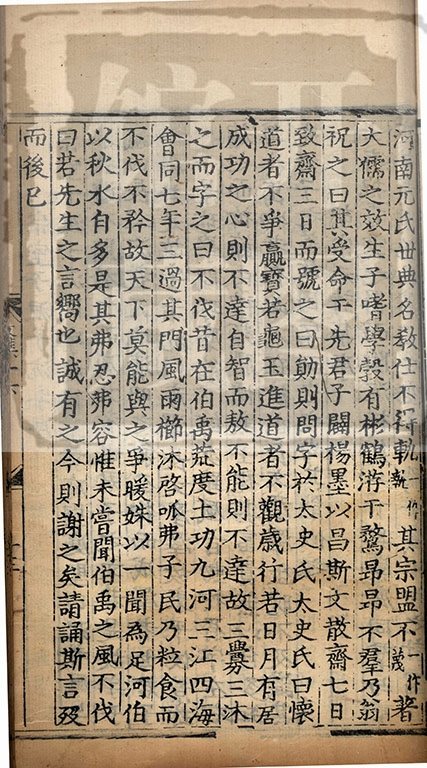 河南元氏世典名教仕不得執一作𫝑其宗盟不一作蔑著
大儒之效生子嗜學穀有彬鶴游于鶩昂昂不羣乃翁
祝之曰其受命于先君子闢楊墨以昌斯文散齋七日
致齋三日而號之曰勛則問字於太史氏太史氏曰懷
道者不爭贏寶若龜玉進道者不觀歲行若日月有居
成功之心則不達自智而敖不能則不達故三釁三沐
之而字之曰不伐昔在伯禹荒度土功九河三江四海
會同七年三過其門風雨櫛沐啓呱弗子民乃粒食而
不伐不矜故天下莫能與之爭暖姝以一聞為足河伯
以秋水自多是其弗忍茀容惟未嘗聞伯禹之風不伐
曰若先生之言嚮也誠有之今則謝之矣請誦斯言殁
而後已